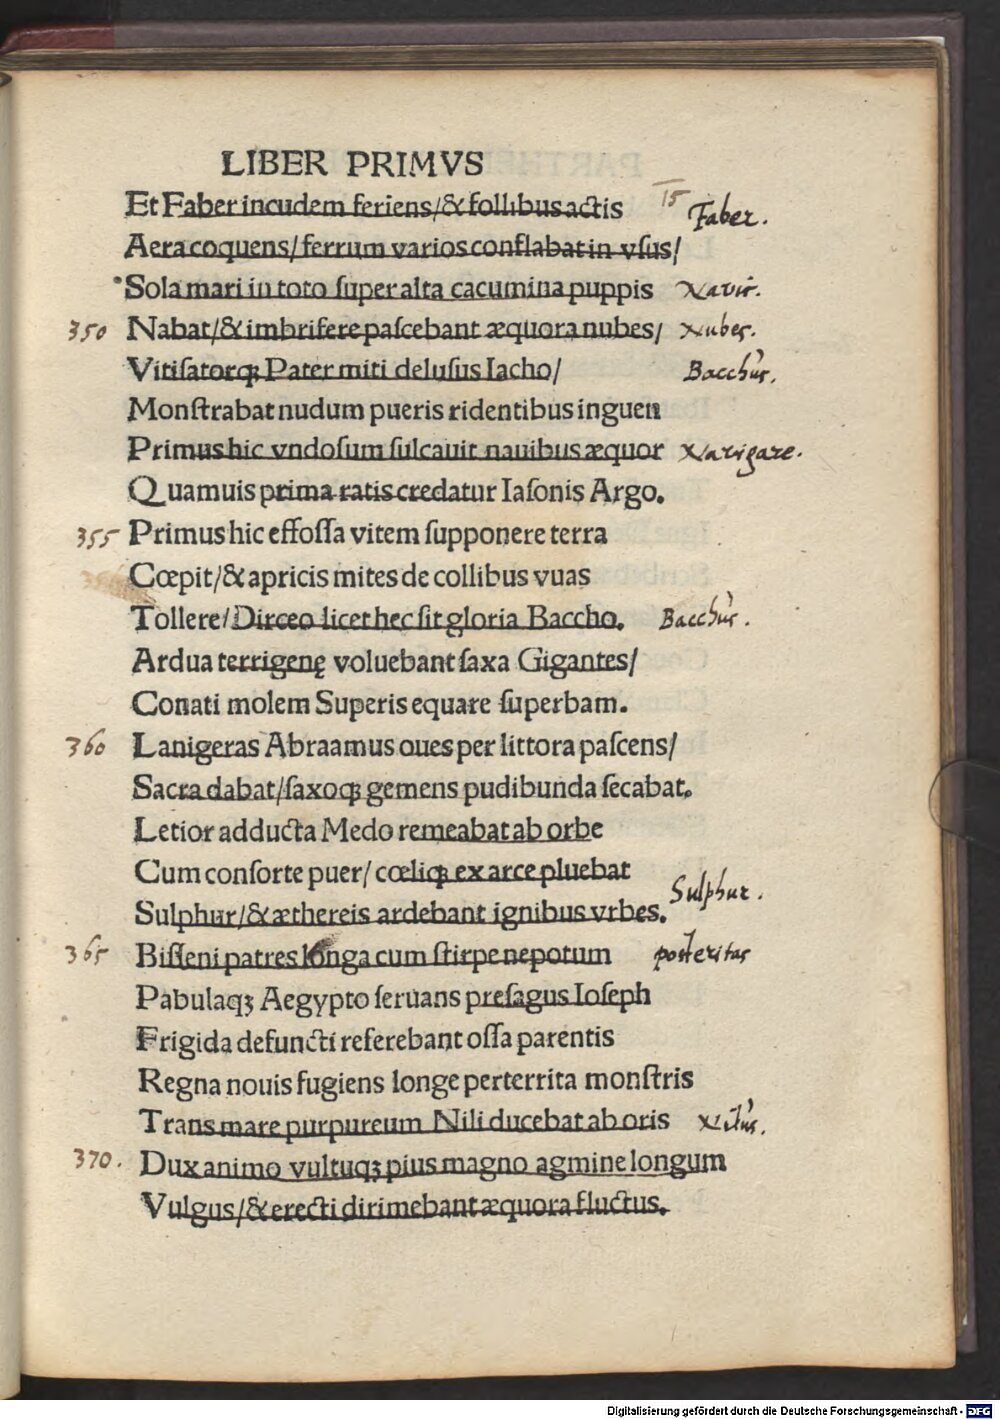 LIBER PRIMVS
15
Et Faber incudem feriens/& follibus actis Faber.
Aera coquens/ferrum varios conflabat in vſus/
Sola mari in toto ſuper alta cacumina puppis Navis.
350 Nabat/& imbrifere paſcebant æquora nubes/ Nubes.
Vitiſatorqꝫ Pater miti deluſus Iacho/ Bacchus.
Monſtrabat nudum pueris ridentibus inguen
Primus hic vndoſum ſulcauit nauibus æquor Navigare.
Quamuis prima ratis credatur Iaſonis Argo.
355 Primus hic effoſſa vitem ſupponere terra
Cœpit/& apricis mites de collibus vuas
Tollere/Dirceo licet hec ſit gloria Baccho. Bacchus.
Ardua terrigenę voluebant ſaxa Gigantes/
Conati molem Superis equare ſuperbam.
360 Lanigeras Abraamus oues per littora paſcens/
Sacra dabat/ſaxoqꝫ gemens pudibunda ſecabat.
Letior adducta Medo remeabat ab orbe
Cum conſorte puer/cœliqꝫ ex arce pluebat
Sulphur/& æthereis ardebant ignibus vrbes. Sulphur.
365 Biſſeni patres longa cum ſtirpe nepotum posteritas
Pabulaqꝫ Aegypto ſeruans preſagus Ioſeph
Frigida defuncti referebant oſſa parentis
Regna nouis fugiens longe perterrita monſtris
Trans mare purpureum Nili ducebat ab oris Nilus.
370. Dux animo vultuqꝫ pius magno agmine longum
Vulgus/& erecti dirimebant æquora fluctus.
Digitalisierung gefördert durch die Deutsche Forschungsgemeinschaft - DFG